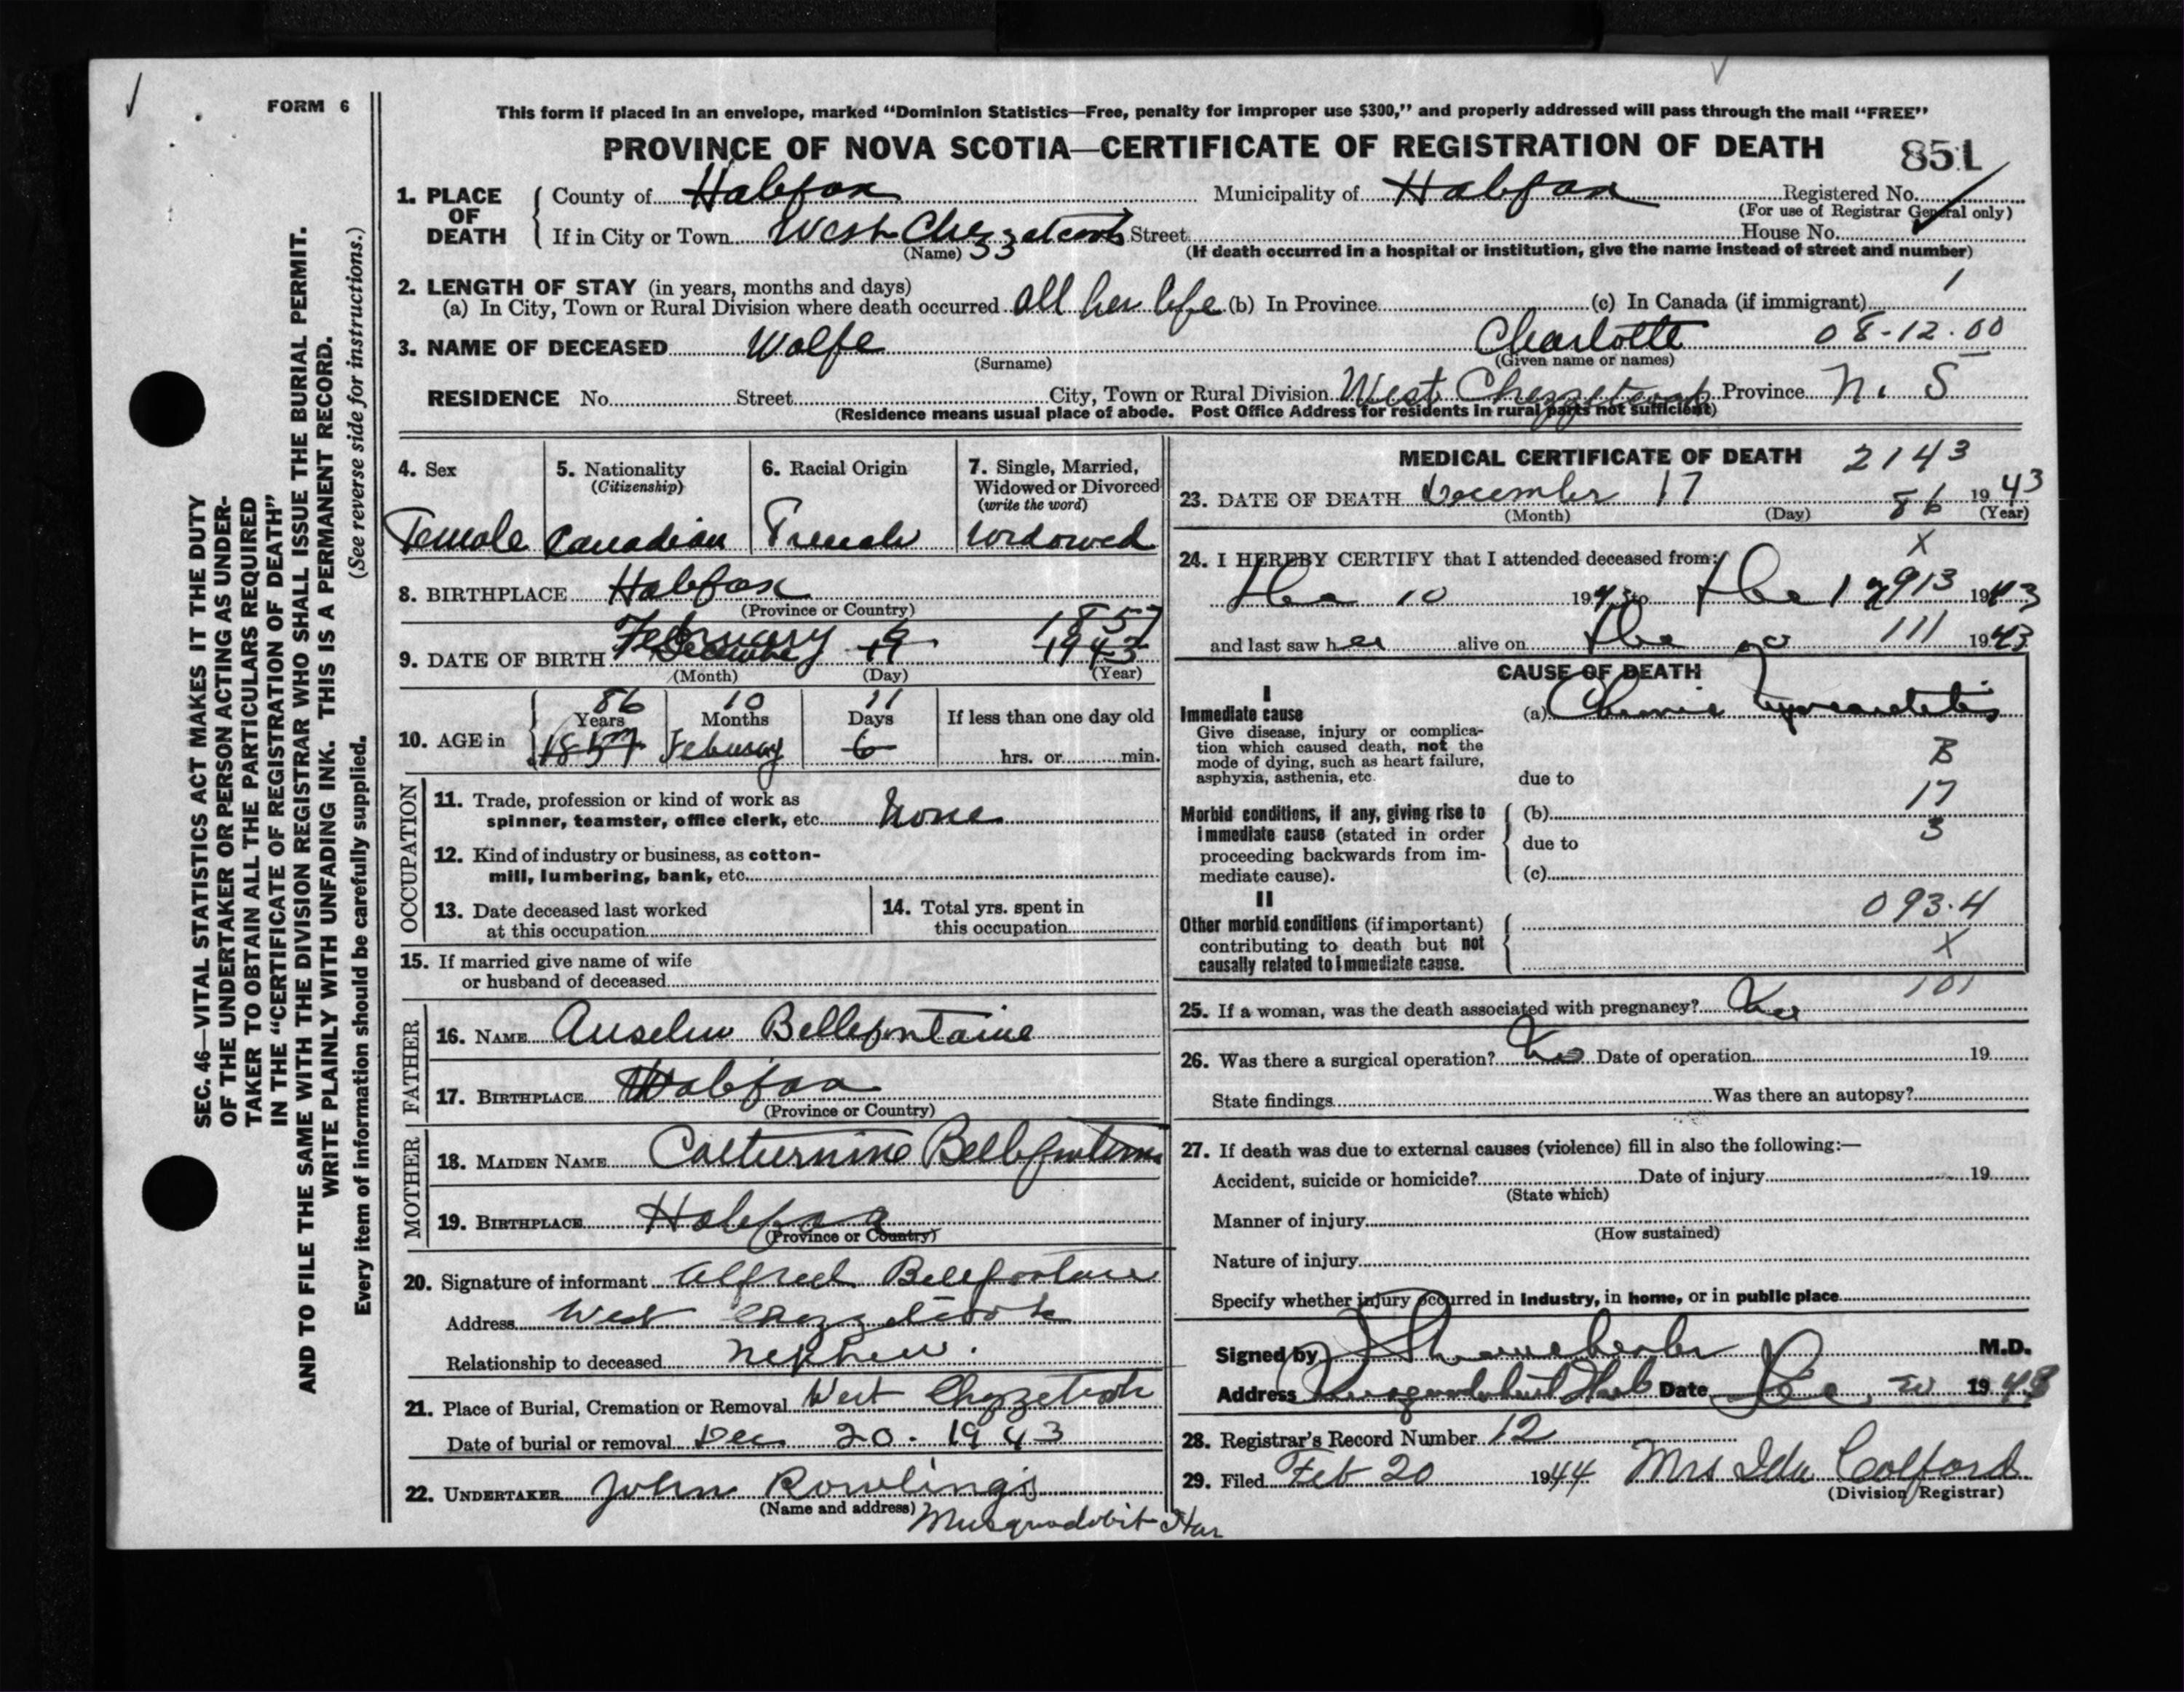 FORM 6
This form if placed in an envelope, marked “Dominion Statistics—Free, penalty for improper use $300,” and properly addressed will pass through the mail “FREE”
PROVINCE OF NOVA SCOTIA—CERTIFICATE OF REGISTRATION OF DEATH 851
1. PLACE OF DEATH
County of Halifax Municipality of Halifax Registered No.
(For use of Registrar General only)
If in City or Town West Chezzetcook Street House No.
(Name) 33 (If death occurred in a hospital or institution, give the name instead of street and number)
2. LENGTH OF STAY (in years, months and days) 1
(a) In City, Town or Rural Division where death occurred all her life (b) In Province (c) In Canada (if immigrant)
3. NAME OF DECEASED Wolfe Charlotte 08-12-00
(Surname) (Given name or names)
RESIDENCE No. Street City, Town or Rural Division West Chezzetcook Province N. S
(Residence means usual place of abode. Post Office Address for residents in rural parts not sufficient)
4. Sex
Female
5. Nationality
(Citizenship)
Canadian
6. Racial Origin
French
7. Single, Married,
Widowed or Divorced
(write the word)
Widowed
8. BIRTHPLACE Halifax
(Province or Country)
February 6 1857
9. DATE OF BIRTH December 19 1943
(Month) (Day) (Year)
86 10 11
10. AGE in Years Months Days If less than one day old
1857 Feburay 6 hrs. or min.
OCCUPATION
11. Trade, profession or kind of work as
spinner, teamster, office clerk, etc. None
12. Kind of industry or business, as cotton-
mill, lumbering, bank, etc.
13. Date deceased last worked
at this occupation
14. Total yrs. spent in
this occupation
15. If married give name of wife
or husband of deceased
FATHER
16. NAME Anselm Bellefontaine
17. BIRTHPLACE Halifax
(Province or Country)
MOTHER
18. MAIDEN NAME Catternine
19. BIRTHPLACE Halifax
(Province or Country)
20. Signature of informant Alfred
Address West Chezzetcook
Relationship to deceased Nephew.
21. Place of Burial, Cremation or Removal West Chezzetcook
Date of burial or removal Dec 20 - 1943
22. UNDERTAKER John Rowlings
(Name and address) Musquodobit Har
MEDICAL CERTIFICATE OF DEATH 2143
23. DATE OF DEATH December 17 1943
(Month) (Day) 86 (Year)
X
24. I HEREBY CERTIFY that I attended deceased from:
Dec 10 1943 to Dec 17 913 1943
and last saw her alive on Dec 111 1943
CAUSE OF DEATH
I
Immediate cause
Give disease, injury or complica-
tion which caused death, not the
mode of dying, such as heart failure,
asphyxia, asthenia, etc.
(a) Chronic Myocarditis
B
due to
17
Morbid conditions, if any, giving rise to
immediate cause (stated in order
proceeding backwards from im-
mediate cause).
(b)
3
due to
(c)
II
Other morbid conditions (if important)
contributing to death but not
causally related to immediate cause.
093.4
X
101
25. If a woman, was the death associated with pregnancy? No
26. Was there a surgical operation? No Date of operation 19
State findings Was there an autopsy?
27. If death was due to external causes (violence) fill in also the following:—
Accident, suicide or homicide? Date of injury 19
(State which)
Manner of injury
(How sustained)
Nature of injury
Specify whether injury occurred in industry, in home, or in public place
Signed by M.D.
Address Date Dec. 20 1943
28. Registrar's Record Number 12
29. Filed Feb 20 1944 Mrs Ida Colford
(Division Registrar)
SEC. 46—VITAL STATISTICS ACT MAKES IT THE DUTY
OF THE UNDERTAKER OR PERSON ACTING AS UNDER-
TAKER TO OBTAIN ALL THE PARTICULARS REQUIRED
IN THE “CERTIFICATE OF REGISTRATION OF DEATH”
AND TO FILE THE SAME WITH THE DIVISION REGISTRAR WHO SHALL ISSUE THE BURIAL PERMIT.
WRITE PLAINLY WITH UNFADING INK. THIS IS A PERMANENT RECORD.
Every item of information should be carefully supplied. (See reverse side for instructions.)